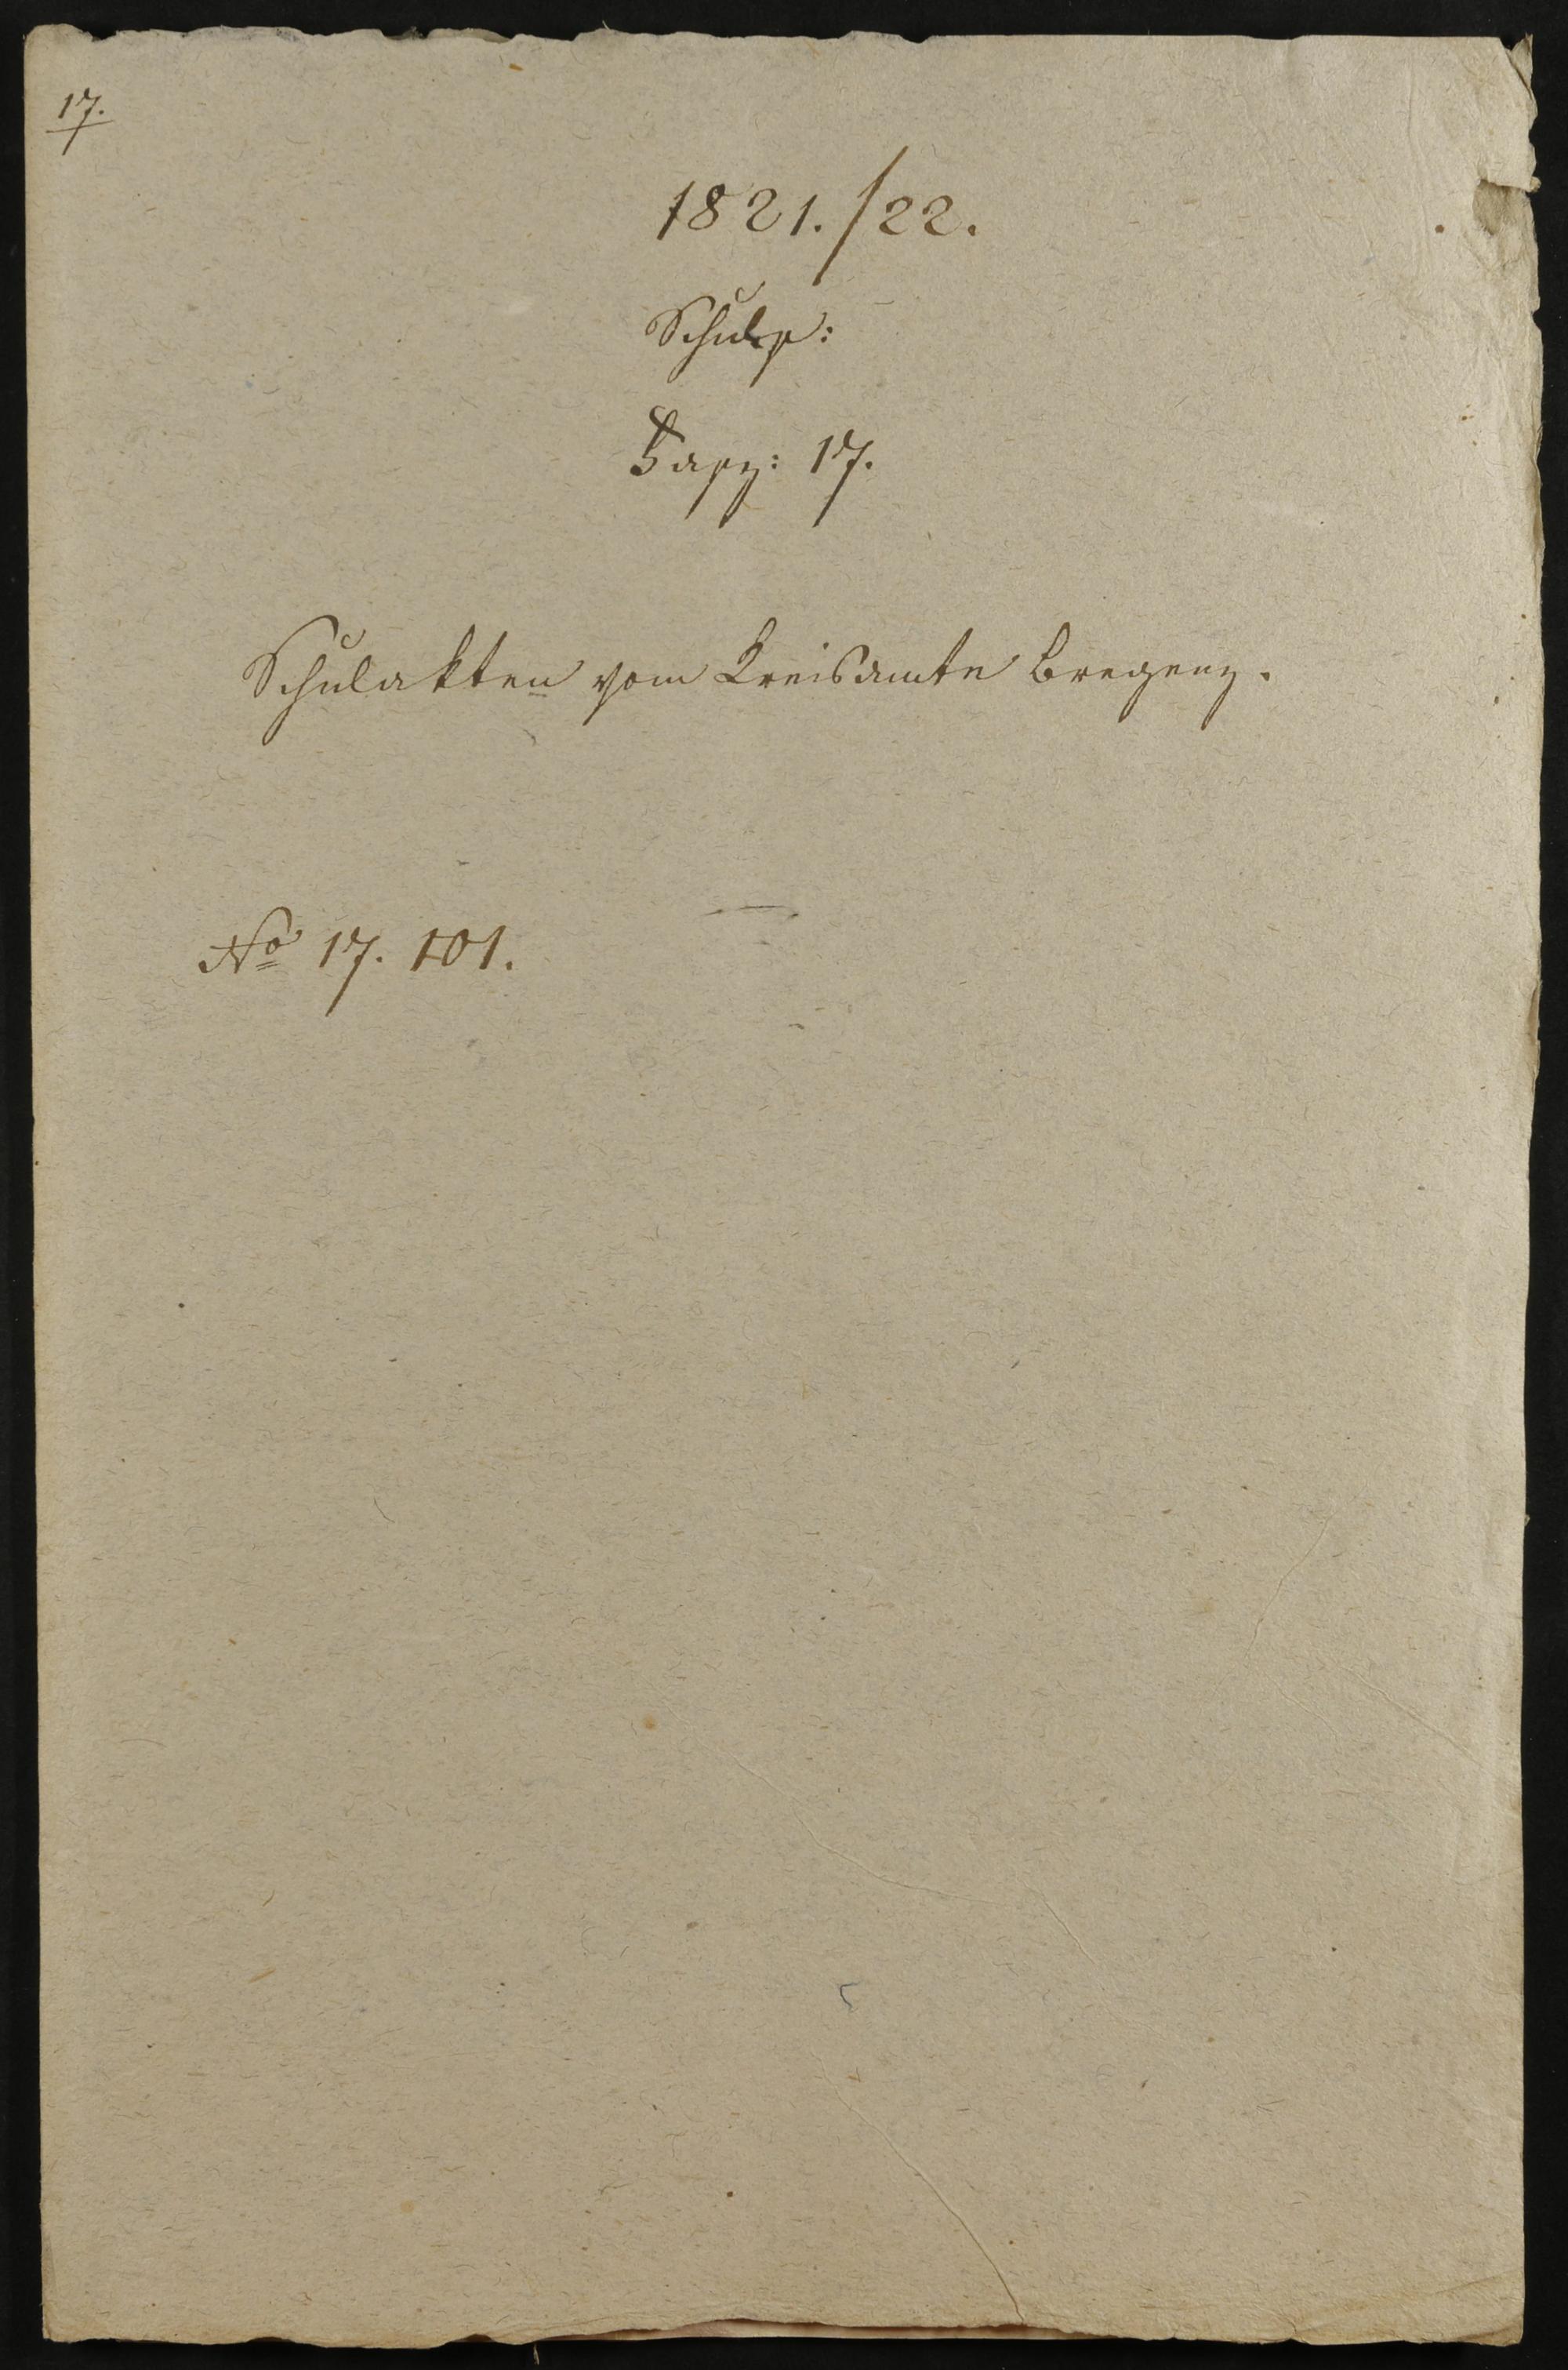 17.
1821./22.
Schulp:
Fasz: 17.
Schulakten vom Kreisamte Bregenz.
No 17. 101.